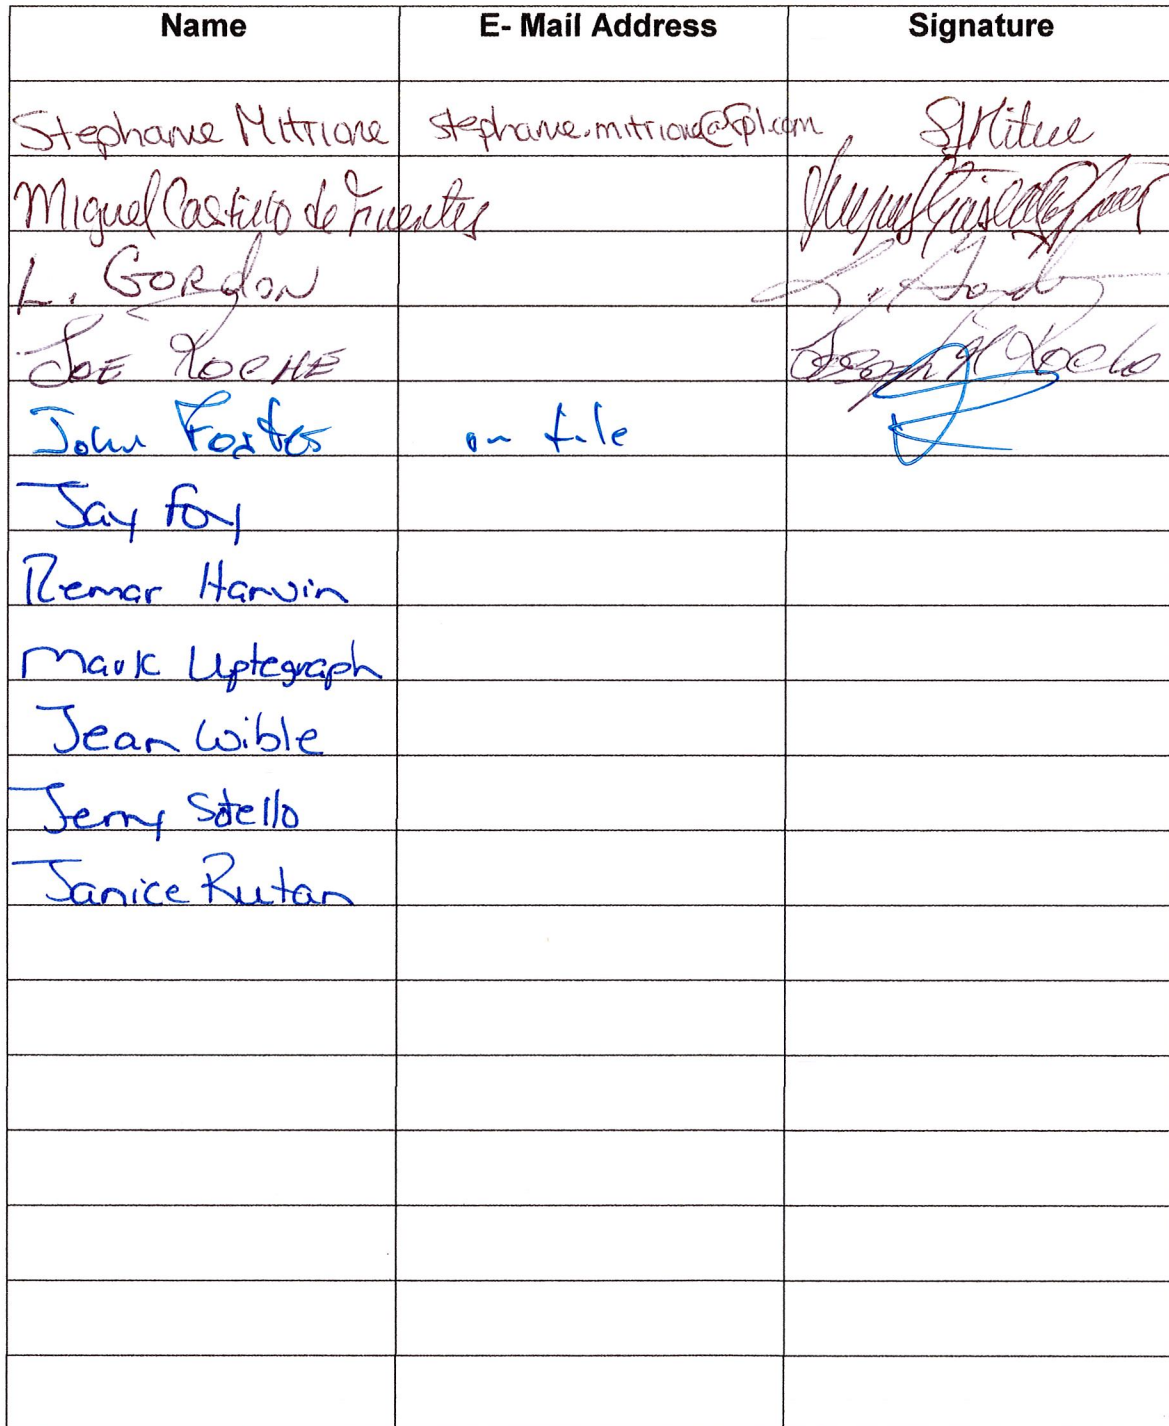 Name E- Mail Address Signature
Stephanie Mitrione stephanie.mitrione@fpl.com
Miguel Castillo de Fuentes
L. GORdON
JOE ROCHE Joseph Roche
John on file
Jay Foy
Remar Harvin
Mark Uptegraph
Jean Wible
Jerry Sotello
Janice Rutan